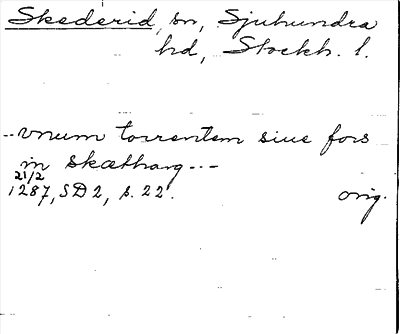 Skederid, sn, Sjuhundra
hd, Stockh. l.
--vnum torrentem siue fors
in skætharg ---
21/2
1287, SD 2, s. 22. orig.